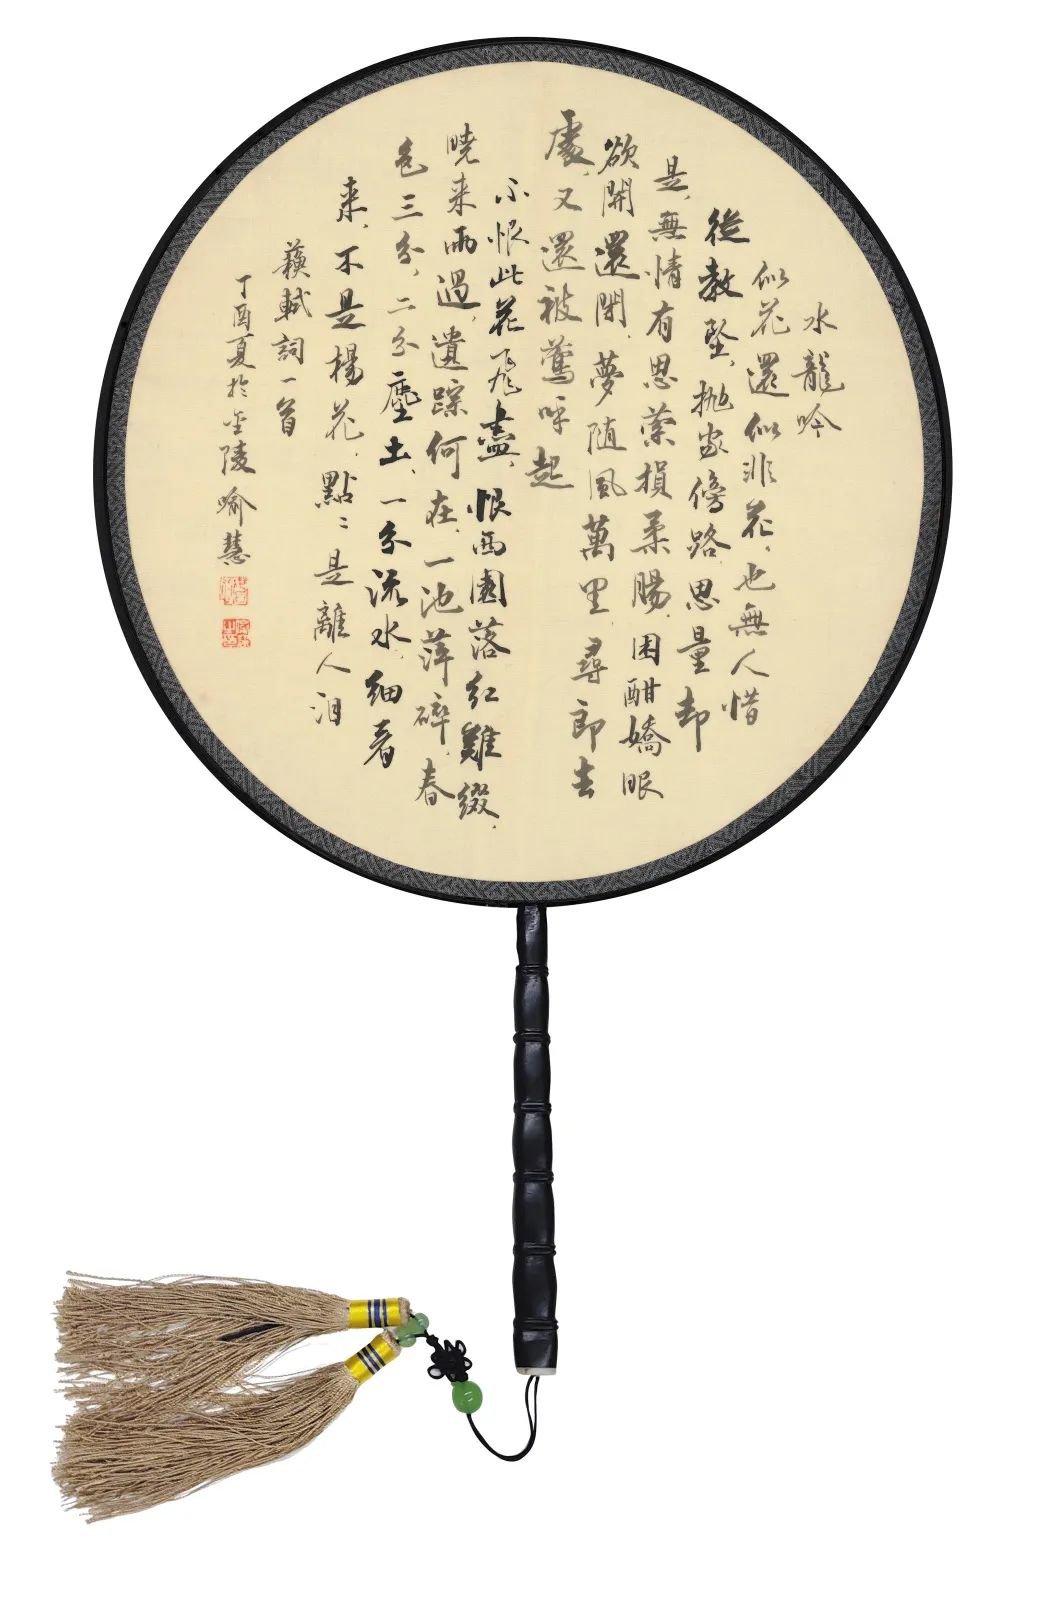 水龍吟
似花還似非花，也無人惜
從教墜，抛家傍路思量却
是，無情有思縈損柔腸困酣嬌眼
欲開還閉，夢随風萬里尋郎去
處，又還被鶯呼起
不恨此花飛盡，恨西園落紅難綴，
曉来雨過，遺踪何在，一池萍碎，春
色三分，二分塵土，一分流水，細看
来，不是楊花，點〻是離人泪
蘇軾詞一首
丁酉夏於金陵喻慧